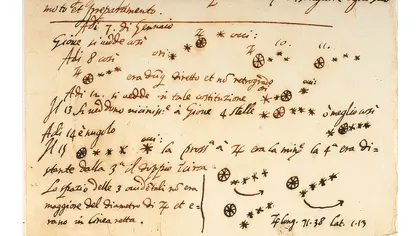 moto et preparamento.
Adi 7. di Gennaio
Gione si vedde così ♃ occ:
Adi 8 così ori: ♃ 10. 11.
era dunq diretto et no retrogrado
Adi 12. si vedde in tale costituzione
Il 13 si veddono vicinisse à Gione 4 stelle ò meglio così
Adi 14 è nugolo
Il 15 occi: la prossa à ♃ era la mina la 4a era di=
stante dalla 3a il doppio circa
Lo spazio delle 3 occidtali nō era
maggiore del diametro di ♃ et e=
rano in linea retta.
♃ long. 71.38 lat. 1.13